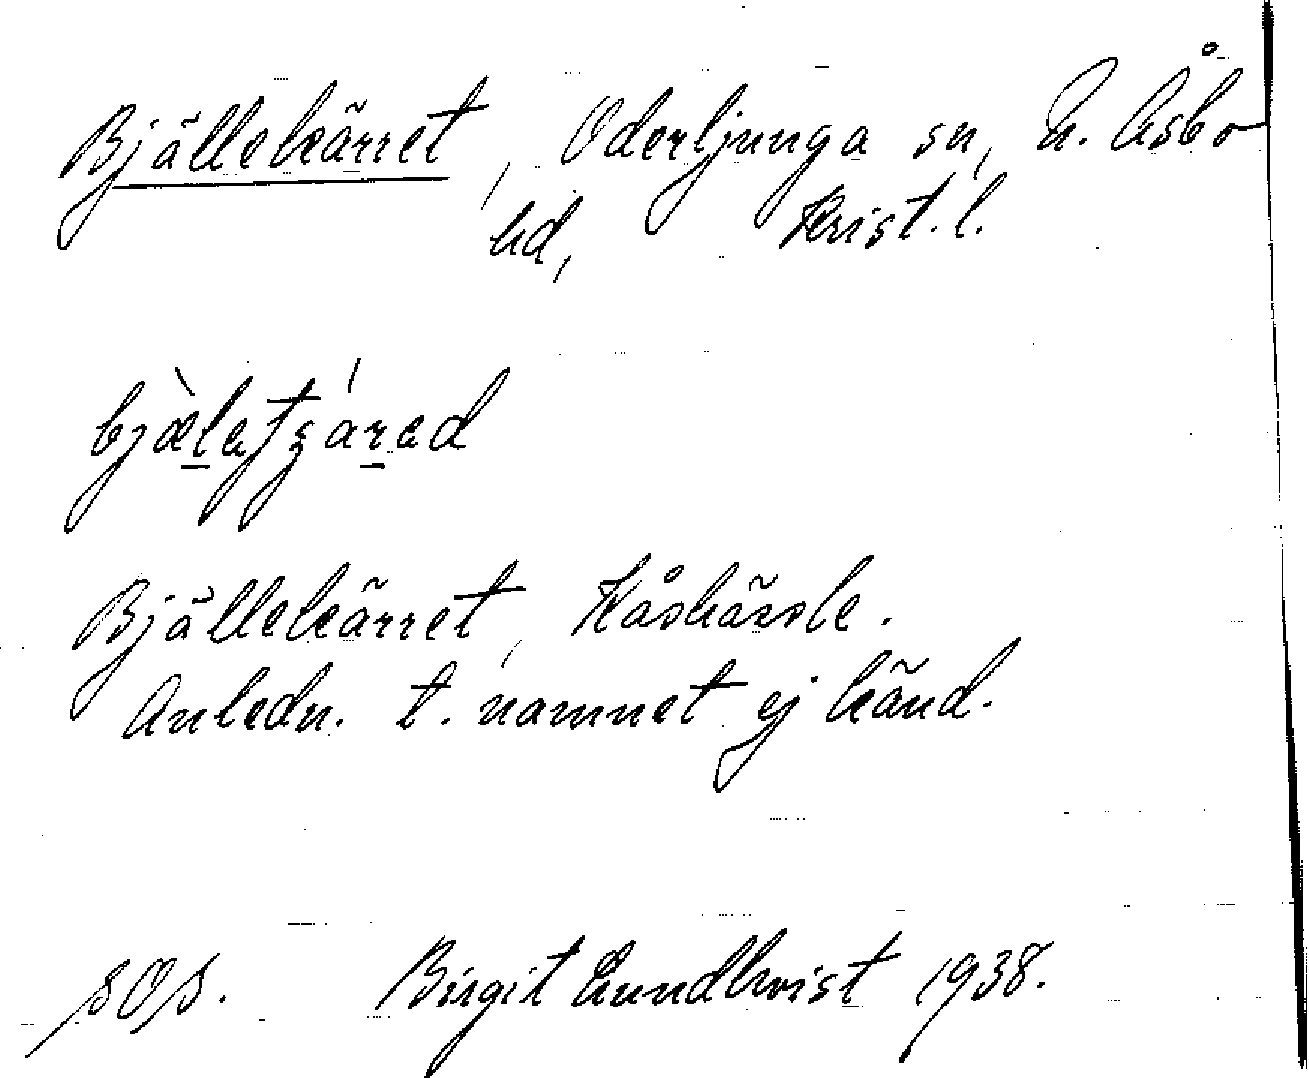 Bjällekärret, Oderljunga sn, N. Åsbo
hd, Krist. l.
bjæ̀lat ʂáred
Bjällekärret, Kåskärsle.
Anledn. t. namnet ej känd.
SOS. Birgit Lundkvist 1938.